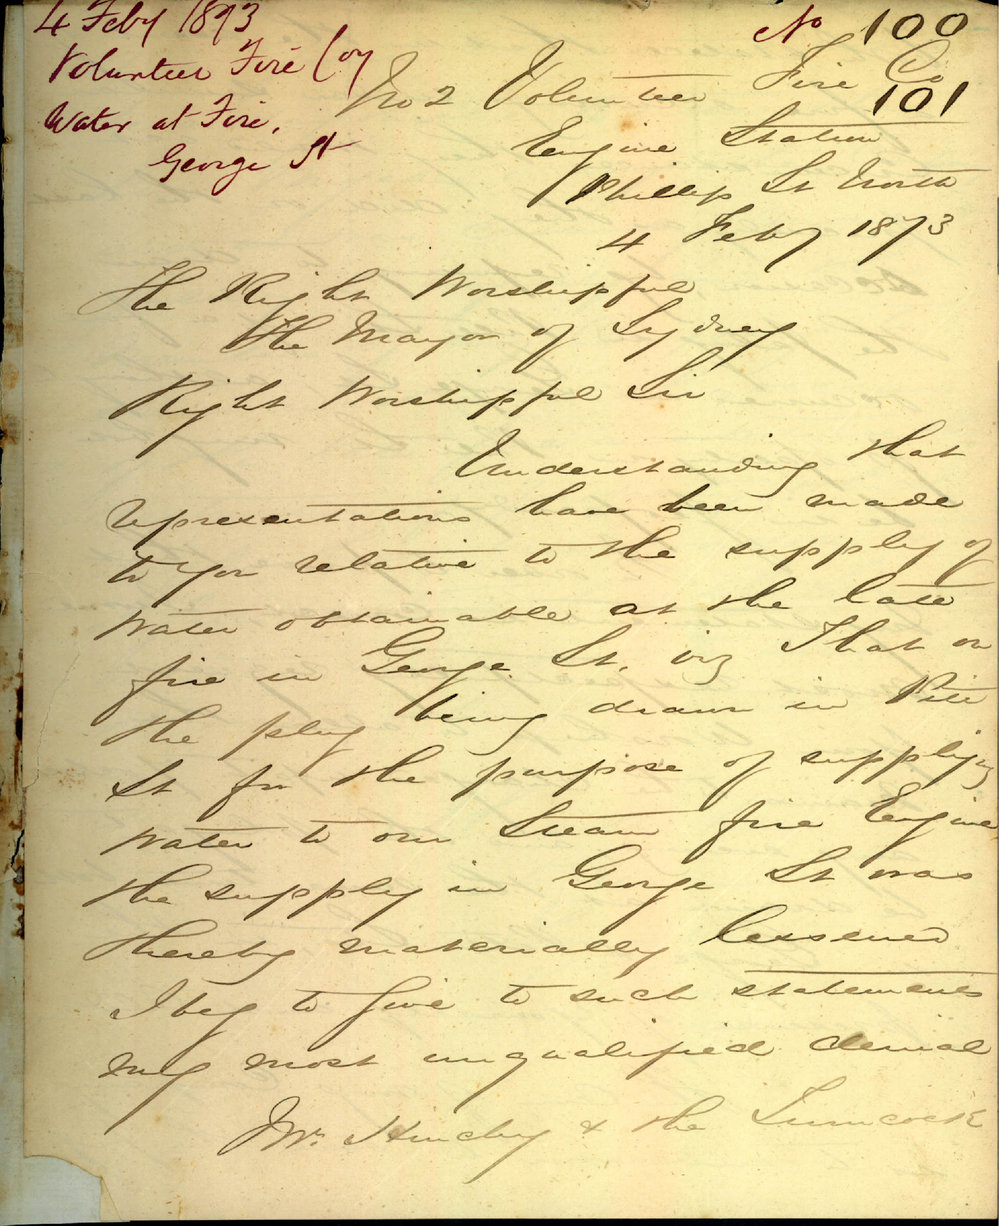 4 Feby 1873
Volunteer Fire Coy
Water at Fire,
George St
No 100
101
No 2 Volunteer Fire Co
Engine Station
Phillip St North
4 Feby 1873
The Right Worshipful
The Mayor of Sydney
Right Worshipful Sir
Understanding that
representations have been made
to you relative to the supply of
water obtainable at the late
fire in George St. viz That on
the plug being drawn in Pitt
St for the purpose of supplying
water to our Steam fire Engine
the supply in George St was
thereby materially lessened
I beg to give to such statements
my most unqualified denial
Mr. & the Turncock